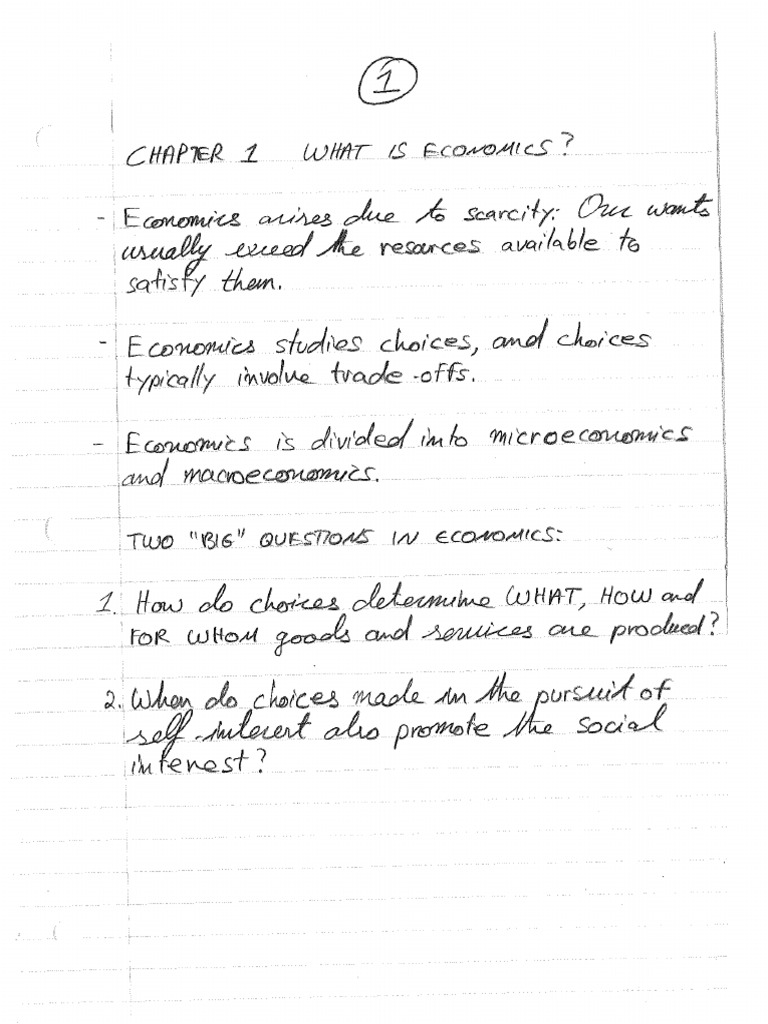 1
CHAPTER 1 WHAT IS ECONOMICS?
- Economics arises due to scarcity: Our wants
usually exceed the resources available to
satisfy them.
- Economics studies choices, and choices
typically involve trade-offs.
- Economics is divided into microeconomics
and macroeconomics.
TWO "BIG" QUESTIONS IN ECONOMICS:
1. How do choices determine WHAT, HOW and
FOR WHOM goods and services are produced?
2. When do choices made in the pursuit of
self-interest also promote the social
interest?